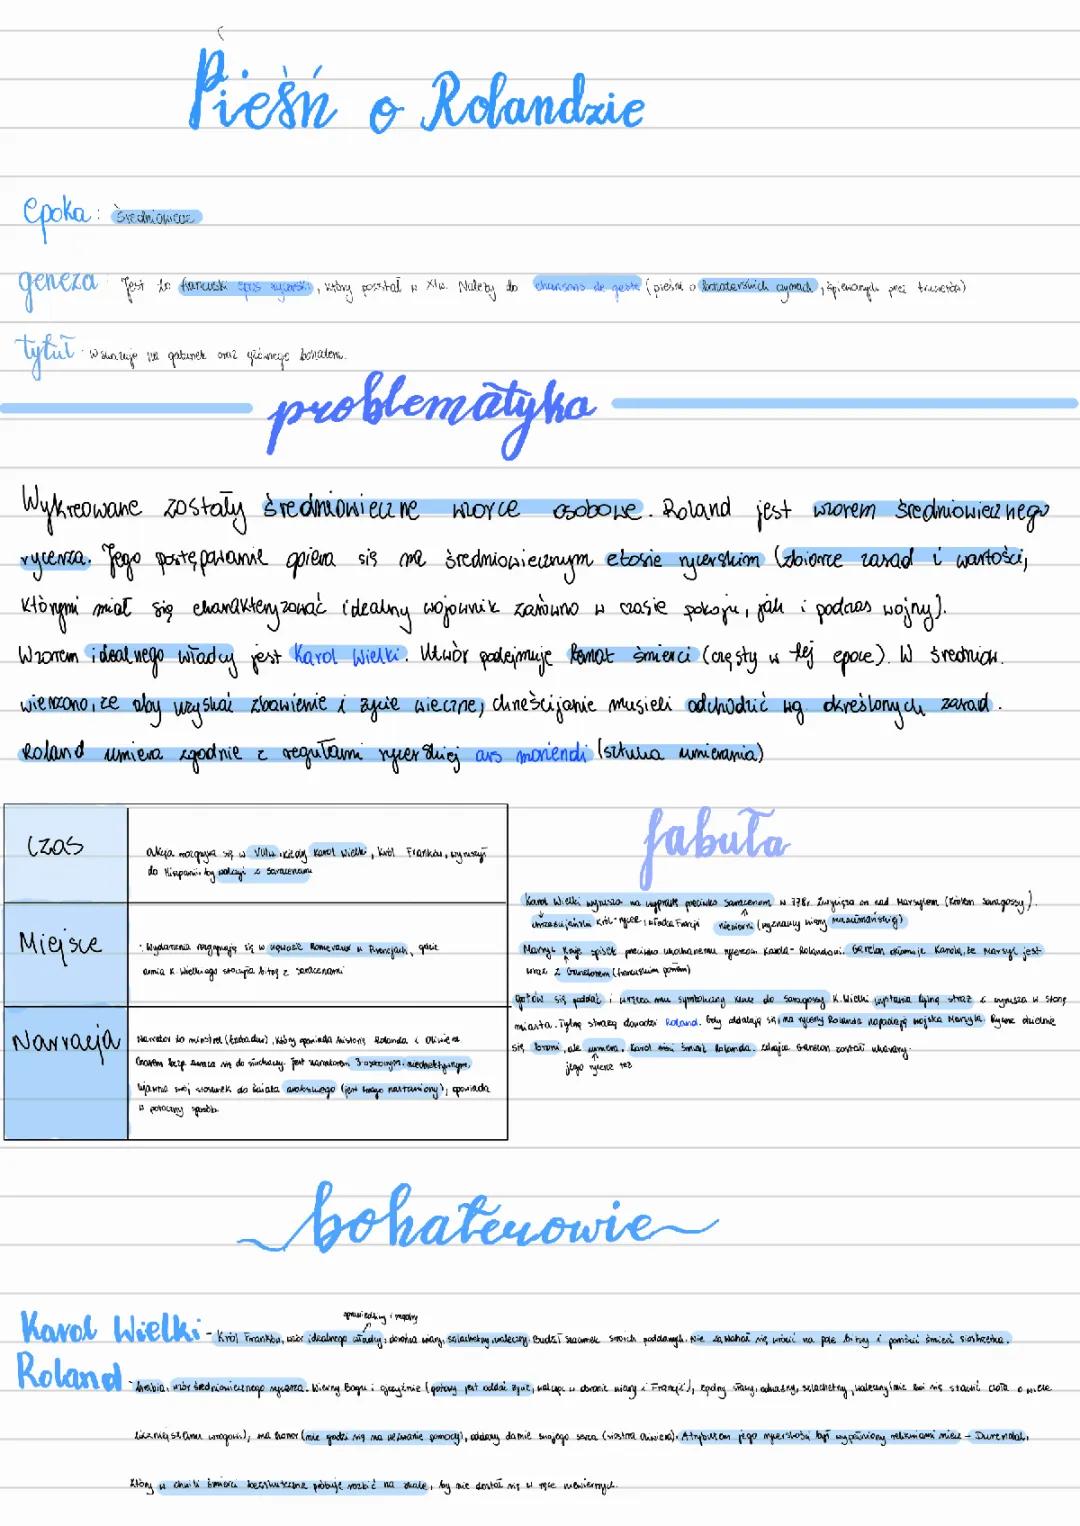 Pieśń o Rolandzie
epoka: średniowiecze
geneza Jest to francuski epos rycerski, który powstał w XIw. Należy do chansons de geste (pieśni o bohaterskich czynach, śpiewanych przez truwerów)
tytuł - wskazuje na gatunek oraz głównego bohatera.
problematyka
Wykreowane zostały średniowieczne wzorce osobowe. Roland jest wzorem średniowiecznego
rycerza. Jego postępowanie opiera się na średniowiecznym etosie rycerskim (zbiorze zasad i wartości,
którymi miał się charakteryzować idealny wojownik zarówno w czasie pokoju, jak i podczas wojny).
Wzorem idealnego władcy jest Karol Wielki. Utwór podejmuje temat śmierci (częsty w tej epoce). W średniow.
wierzono, że aby uzyskać zbawienie i życie wieczne, chrześcijanie musieli odchodzić wg. określonych zasad.
Roland umiera zgodnie z regułami rycerskiej ars moriendi (sztuka umierania)
Czas
akcja rozgrywa się w VIIIw. kiedy Karol Wielki, król Franków, wyruszył
do Hiszpanii, by walczyć z Saracenami
Miejsce
· Wydarzenia rozgrywają się w wąwozie Roncevaux w Pirenejach, gdzie
armia K. Wielkiego stoczyła bitwę z saracenami
Narracja
Narrator to minstrel, który opowiada historię Rolanda i Oliwiera
zwraca się do słuchaczy. Jest narratorem 3-osobowym, nieobiektywnym.
Wyraża swój stosunek do świata (jest mającego nastrojony), opowiada
w potoczny sposób.
fabuła
Karol Wielki wyrusza na wyprawę przeciwko Saracenom w 778r. Zwycięża on nad Marsylem (królem Saragossy).
chrześcijański król-rycerz i władca Francji niewierni (wyznawcy wiary muzułmańskiej)
Marsyl knuje spisek przeciwko ukochanemu rycerzowi Karola - Rolandowi. Ganelon okłamuje Karola, że Marsyl jest
wraz z Ganelonem (francuskim parem)
gotów się poddać i wręcza mu symboliczny klucz do Saragossy K.Wielki wystawia tylną straż i wyrusza w stronę
miasta. Tylną strażą dowodzi Roland. Gdy oddalają się, na rycerzy Rolanda napadają wojska Marsyla. Rycerz dzielnie
się broni, ale umiera. Karol mści śmierć Rolanda. Zdrajca Ganelon zostaje ukarany.
jego rycerze też
bohaterowie
sprawiedliwy i mądry
Karol Wielki - Król Franków, wzór idealnego władcy, obrońca wiary, szlachetny, waleczny. Budzi szacunek swoich poddanych. Nie zawahał się wrócić na pole bitwy i pomścić śmierć siostrzeńca.
Roland - hrabia, wzór średniowiecznego rycerza. Wierny Bogu i ojczyźnie (gotowy jest oddać życie, walcząc w obronie wiary i Francji), żądny sławy, odważny, szlachetny, waleczny (nie boi się stawić czoła o wiele
liczniejszemu wrogowi), ma honor (nie godzi się na wezwanie pomocy), oddany damie swojego serca (siostra Oliwiera). Atrybutem jego rycerskości był wypełniony relikwiami miecz - Durendal,
który w chwili śmierci bezskutecznie próbuje rozbić na skale, by nie dostał się w ręce niewiernych.